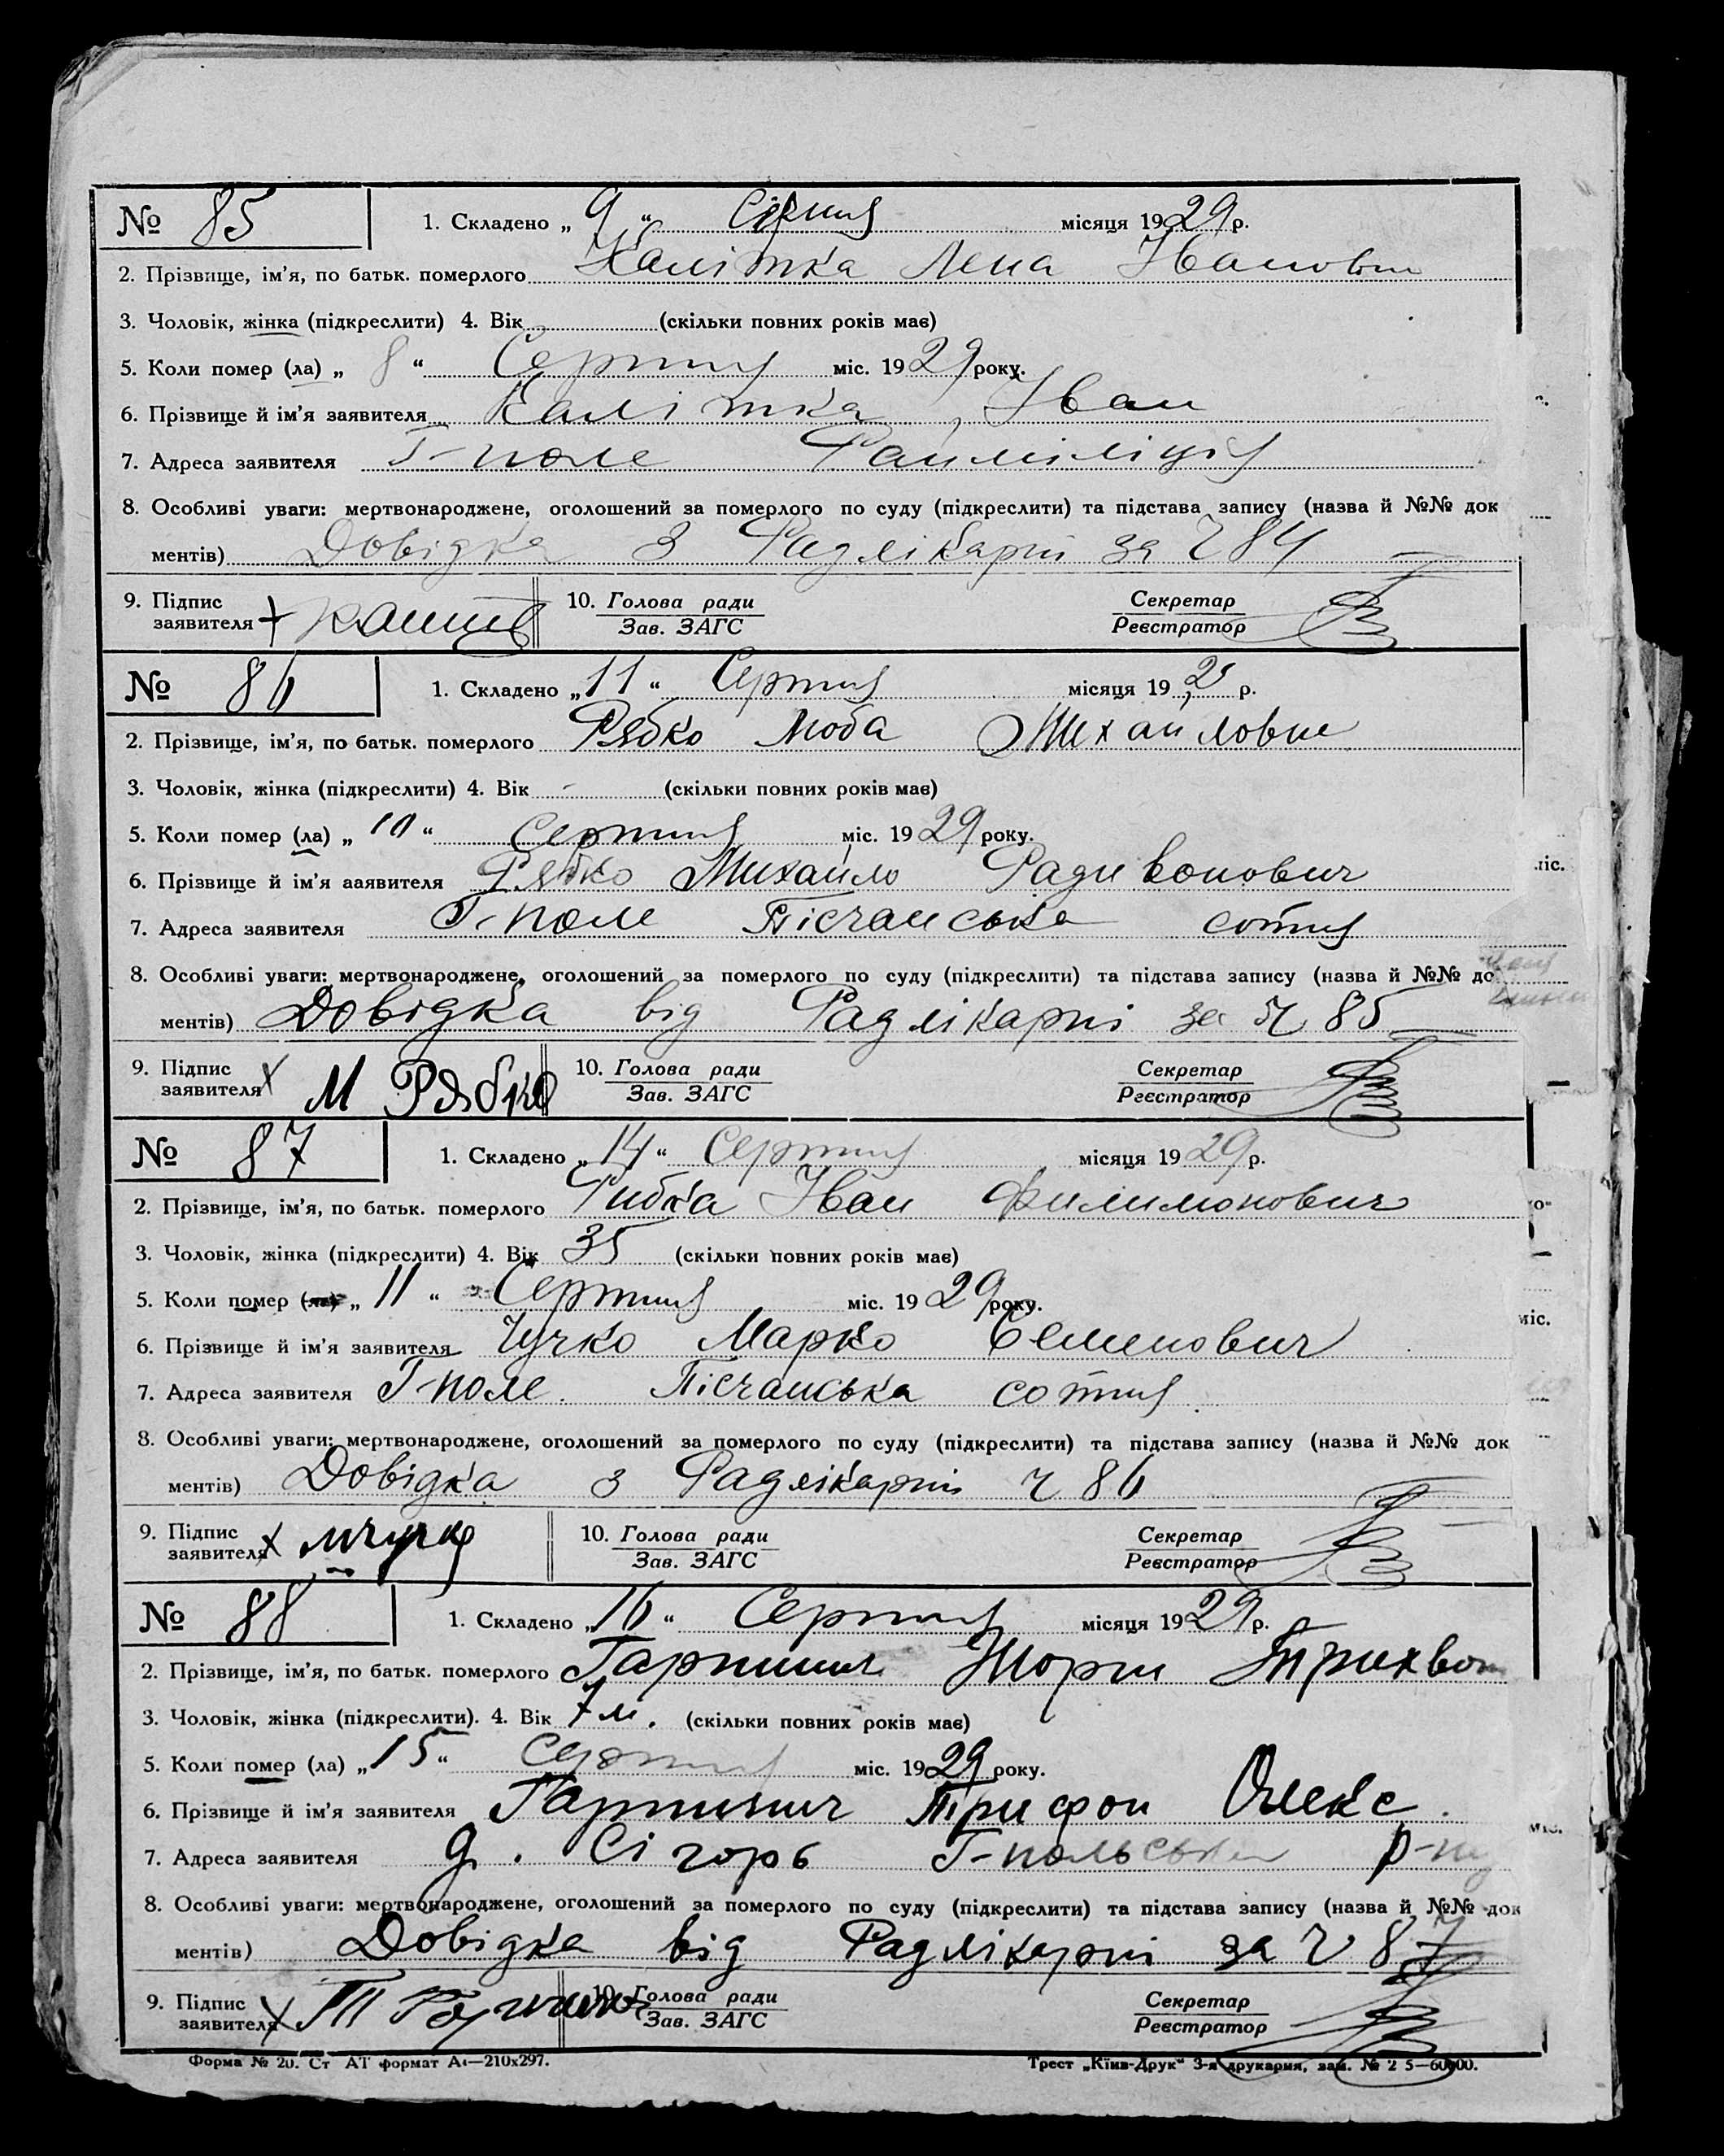 № 85 1. Складено „ 9 “ Серпня місяця 1929 р.
2. Прізвище, ім’я, по батьк. померлого Калітка Лена Івановн
3. Чоловік, жінка (підкреслити) 4. Вік (скільки повних років має)
5. Коли помер (ла) „ 8 “ Серпня міс. 1929 року.
6. Прізвище й ім’я заявителя Калітка, Іван
7. Адреса заявителя Г-поле Райміліція
8. Особливі уваги: мертвонароджене, оголошений за померлого по суду (підкреслити) та підстава запису (назва й №№ док
ментів) Довідка з Радлікарні за ч 84
9. Підпис 10. Голова ради Секретар
заявителя Зав. ЗАГС Реєстратор
№ 86 1. Складено „ 11 “ Серпня місяця 19 р.
2. Прізвище, ім’я, по батьк. померлого Рябко Люба Михайловне
3. Чоловік, жінка (підкреслити) 4. Вік - (скільки повних років має)
5. Коли помер (ла) „ 10 “ Серпня міс. 1929 року.
6. Прізвище й ім’я аявителя Рябко Михайло Радивонович
7. Адреса заявителя Г-поле Пісчанська сотня
8. Особливі уваги: мертвонароджене, оголошений за померлого по суду (підкреслити) та підстава запису (назва й №№ до
ментів) Довідка від Радлікарні за ч 85
9. Підпис 10. Голова ради Секретар
заявителя х М Рябко Зав. ЗАГС Реєстратор
№ 87 1. Складено „ 14 “ Серпня місяця 1929 р.
2. Прізвище, ім’я, по батьк. померлого Рибка Іван Филимонович
3. Чоловік, жінка (підкреслити) 4. Вік 35 (скільки повних років має)
5. Коли помер (ла) „ 11 “ Серпня міс. 1929 року.
6. Прізвище й ім’я заявителя Чучко Марко Семенович
7. Адреса заявителя Г-поле. Пісчанська сотня.
8. Особливі уваги: мертвонароджене, оголошений за померлого по суду (підкреслити) та підстава запису (назва й №№ док
ментів) Довідка з Радлікарні ч 86
9. Підпис 10. Голова ради Секретар
заявителя х Зав. ЗАГС Реєстратор
№ 88 1. Складено „ 16 “ Серпня місяця 1929 р.
2. Прізвище, ім’я, по батьк. померлого
3. Чоловік, жінка (підкреслити). 4. Вік 7 м. (скільки повних років має)
5. Коли помер (ла) „ 15 “ Серпня міс. 1929 року.
6. Прізвище й ім’я заявителя Трифон Олекс.
7. Адреса заявителя Г-польськ р-ну
8. Особливі уваги: мертвонароджене, оголошений за померлого по суду (підкреслити) та підстава запису (назва й №№ док
ментів) Довідка від Радлікарні за ч 87
9. Підпис 10. Голова ради Секретар
заявителя х Зав. ЗАГС Реєстратор
Форма № 20. Ст АТ формат А4—210х297. Трест „Київ-Друк“ 3-я друкарня, зам. №